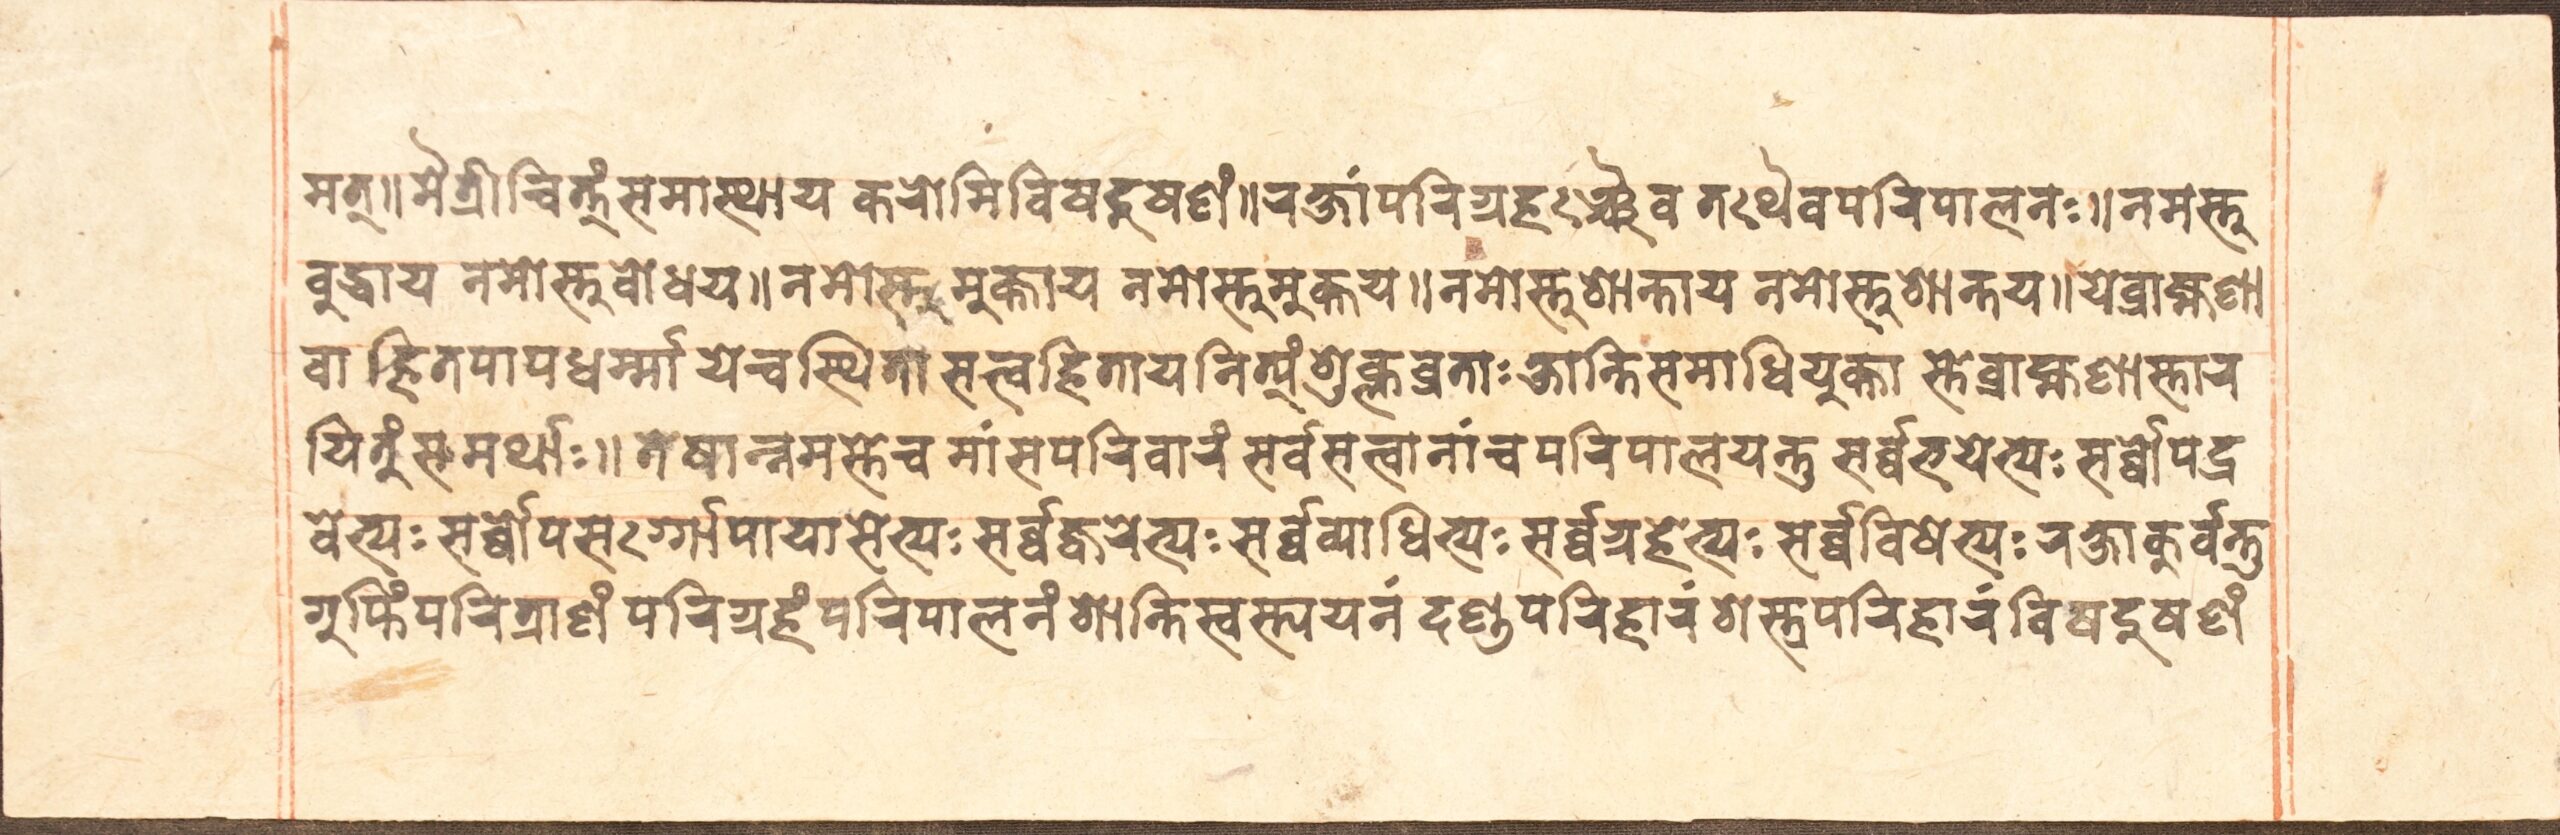 मत्॥मैत्रीन्चित्तंसमास्थाय करोमिविषदूषणं॥रक्षांपरिग्रहःञ्चैव तःथैवपरिपालनः॥नमस्तु
बुद्धाय नमोस्तुबोधय॥नमोस्तु मुक्ताय नमोस्तुमुक्तय॥नमोस्तुशान्ताय नमोस्तुशान्तय॥येब्राह्मणा
वा हितपापधर्म्मा येचस्थिता सत्त्वहितायनित्यंशुक्लव्रताः क्षान्तिसमाधियुक्ता स्तेब्राह्मणास्तार
यितुंसमर्थाः॥ तेषान्नमस्तेच मांसपरिवारं सर्वसत्वानांच परिपालयन्तु सर्व्वभयेभ्यः सर्व्वोपद्र
वेभ्यः सर्व्वोपसःर्ग्गापायासेभ्यः सर्व्वज्वरेभ्यः सर्व्वव्याधिभ्यः सर्व्वग्रहेभ्यः सर्व्वविषेभ्यः रक्षाकुर्वन्तु
गुप्तिंपरित्राणं परिग्रहं परिपालनं शान्तिस्वस्त्ययनं दण्डपरिहारं शस्त्रपरिहारं विषदूषणं